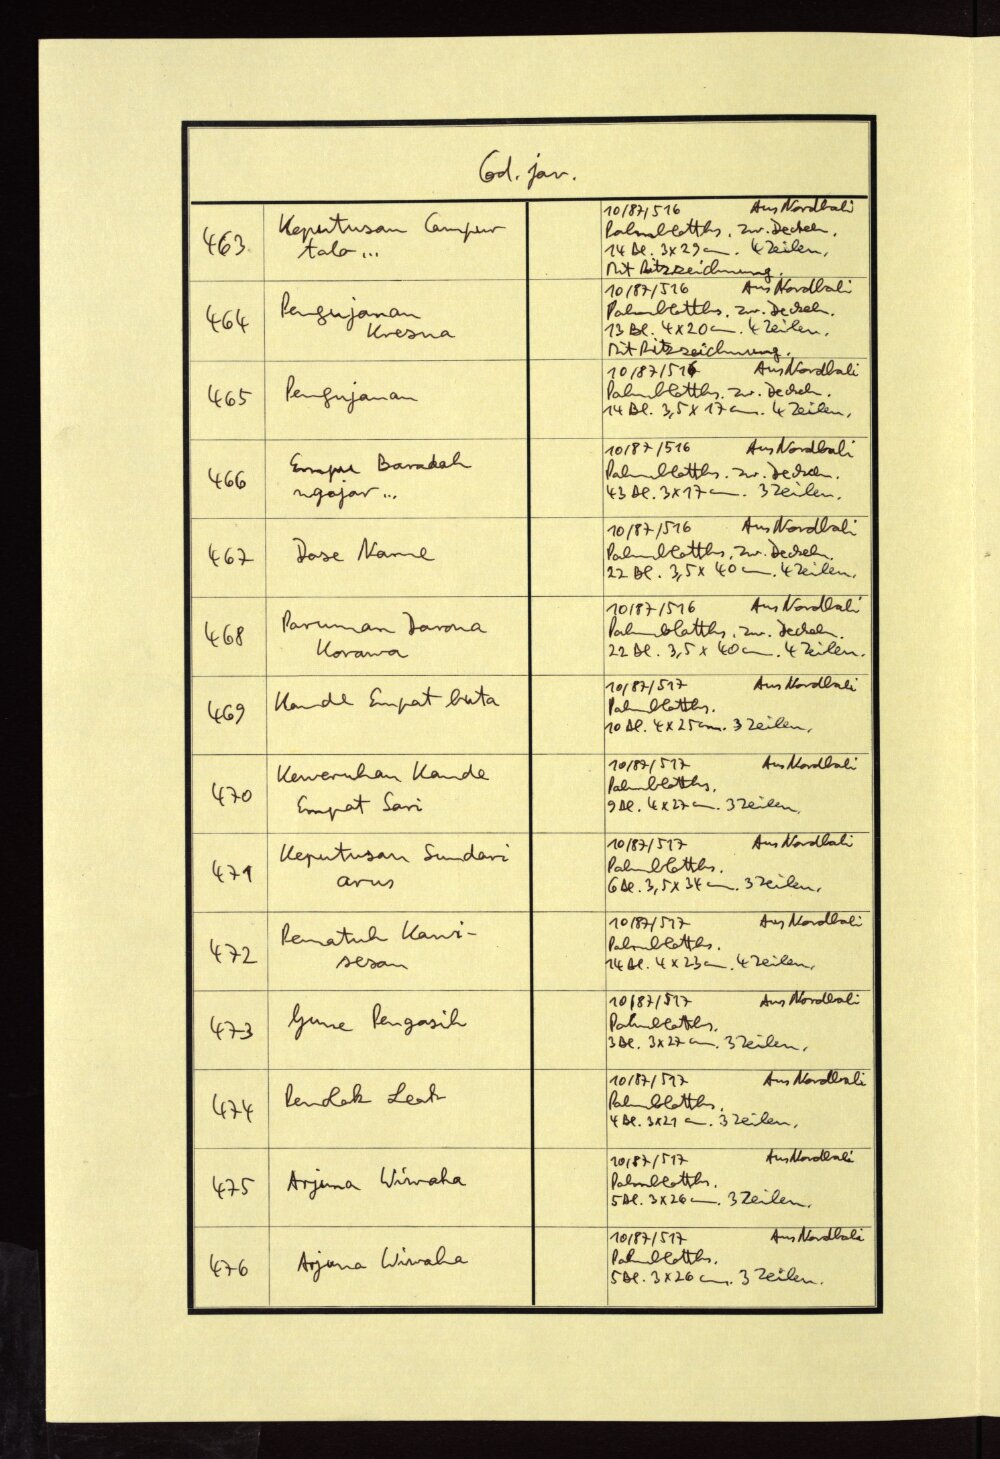 Cod. jav.
463 Keputusan Campur
talo ...
10/87/516 Aus Nordbali
Palmblatths. zw. Deckeln.
14 Bl. 3x29 cm. 4 Zeilen.
Mit Ritzzeichnung.
464 Pengujanan
Kresna
10/87/516 Aus Nordbali
Palmblatths. zw. Deckeln.
13 Bl. 4x20 cm. 4 Zeilen.
Mit Ritzzeichnung.
465 Pengujanan
10/87/516 Aus Nordbali
Palmblatths. zw. Deckeln.
14 Bl. 3,5 x 17 cm. 4 Zeilen.
466 Empu Baradah
ngajar ...
10/87/516 Aus Nordbali
Palmblatths. zw. Deckeln.
43 Bl. 3x17 cm. 3 Zeilen.
467 Dase Name
10/87/516 Aus Nordbali
Palmblatths. zw. Deckeln.
22 Bl. 3,5 x 40 cm. 4 Zeilen.
468 Paruman Darona
Korawa
10/87/516 Aus Nordbali
Palmblatths. zw. Deckeln.
22 Bl. 3,5 x 40 cm. 4 Zeilen.
469 Kande Empat buta
10/87/517 Aus Nordbali
Palmblatths.
10 Bl. 4x25 cm. 3 Zeilen.
470 Keweruhan Kande
Empat Sari
10/87/517 Aus Nordbali
Palmblatths.
9 Bl. 4x27 cm. 3 Zeilen.
471 Keputusan Sundari
arus
10/87/517 Aus Nordbali
Palmblatths.
6 Bl. 3,5 x 34 cm. 3 Zeilen.
472 Pematuh Kawi-
sesan
10/87/517 Aus Nordbali
Palmblatths.
14 Bl. 4 x 23 cm. 4 Zeilen.
473 Gune Pengasih
10/87/517 Aus Nordbali
Palmblatths.
3 Bl. 3x27 cm. 3 Zeilen.
474 Penolak Leak
10/87/517 Aus Nordbali
Palmblatths.
4 Bl. 3x21 cm. 3 Zeilen.
475 Arjuna Wiwaha
10/87/517 Aus Nordbali
Palmblatths.
5 Bl. 3x26 cm. 3 Zeilen.
476 Arjuna Wiwaha
10/87/517 Aus Nordbali
Palmblatths.
5 Bl. 3x26 cm. 3 Zeilen.